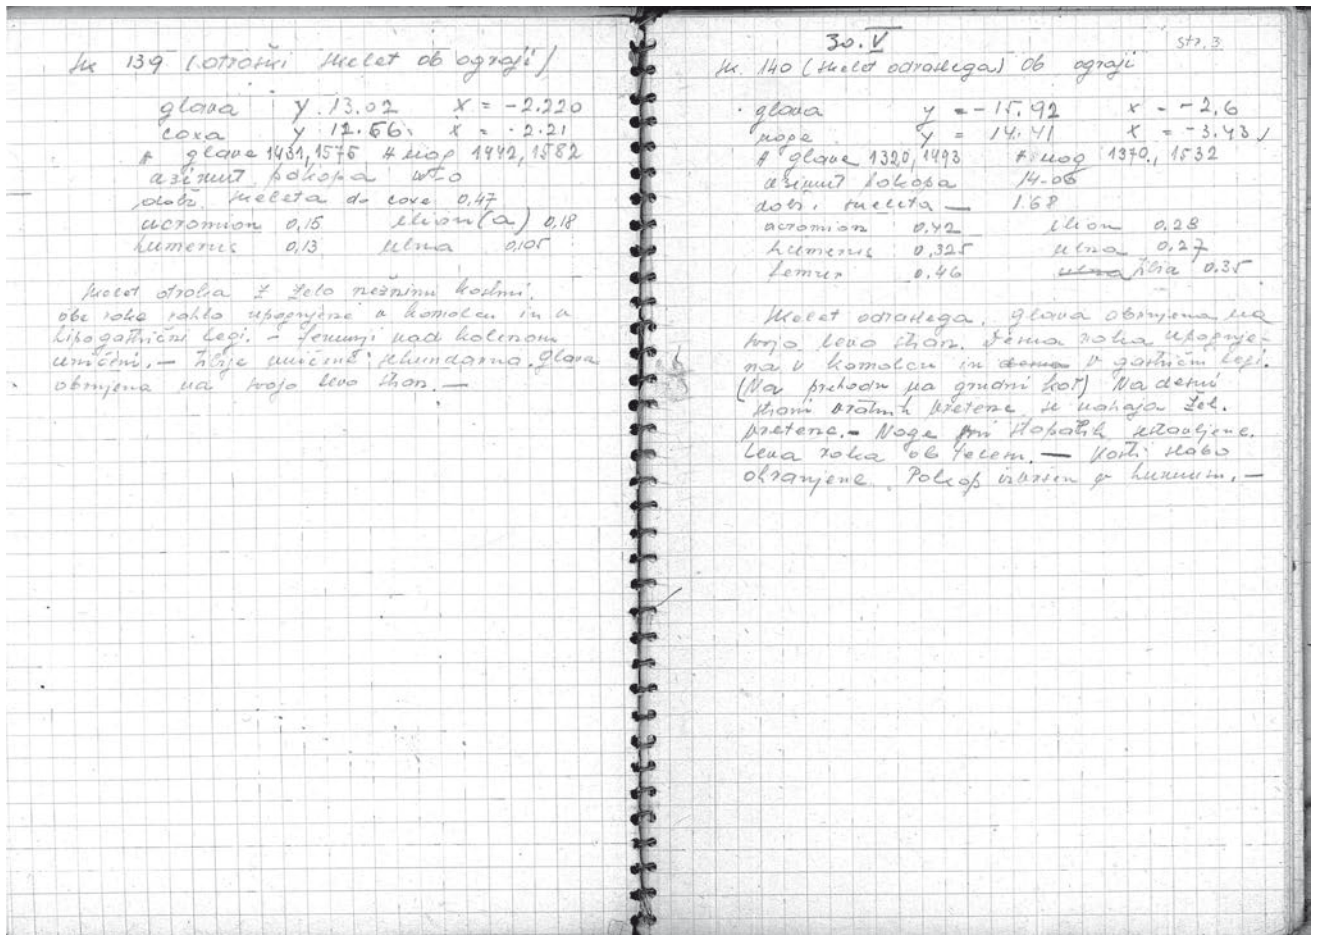 sk 139 (otroški skelet ob ograji)
glava y 13.02 x = -2.220
coxa y 12.66 x = -2.21
# glave 1431, 1575 # nog 1442, 1582
azimut pokopa W-O
dolž. skeleta do coxe 0,47
acromion 0,15 ilion (a) 0,18
humerus 0,13 ulna 0,105
Skelet otroka z zelo nežnimi kostmi.
obe roke rahlo upognjene v komolcu in v
hipogastrični legi. - femurji nad kolenom
uničeni. - tibije uničene sekundarno. Glava
obrnjena na svojo levo stran. —
30. V
str. 3
sk. 140 (skelet odraslega) ob ograji
glava y = -15.92 x = -2.6
noge y = 14.41 x = -3.43
# glave 1320, 1493 # nog 1370, 1532
azimut pokopa 14-06
dolž. skeleta — 1.68
acromion 0.42 ilion 0.28
humerus 0.325 ulna 0.27
femur 0.46 ulna tibia 0.35
Skelet odraslega, glava obrnjena na
svojo levo stran. Desna roka upognje-
na v komolcu in desna v gastrični legi.
(Na prehodu na grudni koš) Na desni
strani vratnih vretenc se nahaja žel.
vretence. - Noge pri stopalih sestavljene.
Leva roka ob telesu. — Kosti slabo
ohranjene. Pokop izvršen v humusu. —